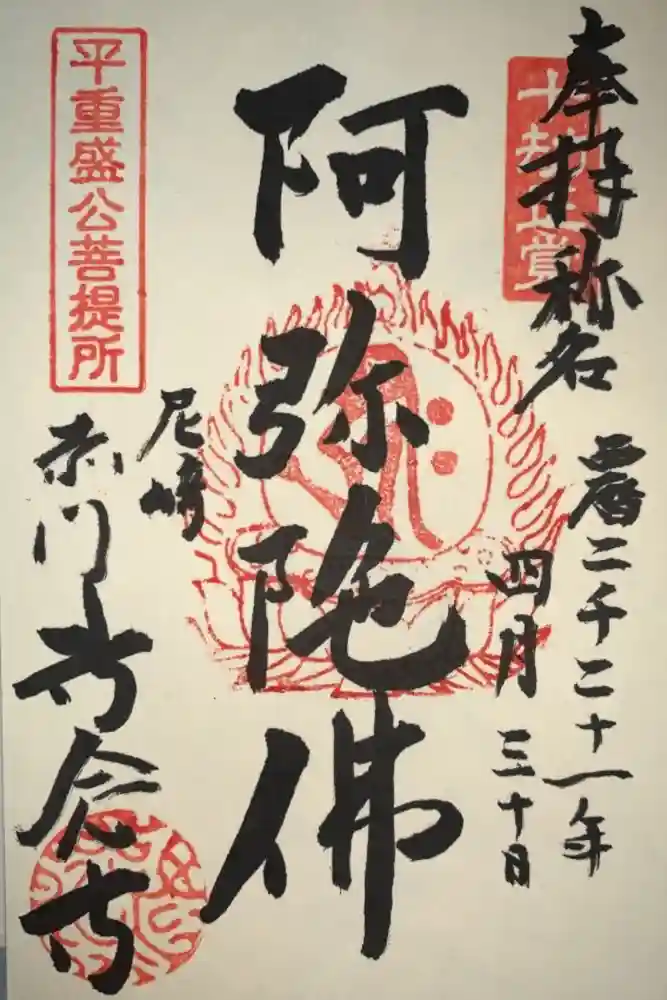 奉拝称名
十劫正覚
西暦二千二十一年
四月三十日
阿弥陀佛
尼崎
赤門専念寺
平重盛公菩提所